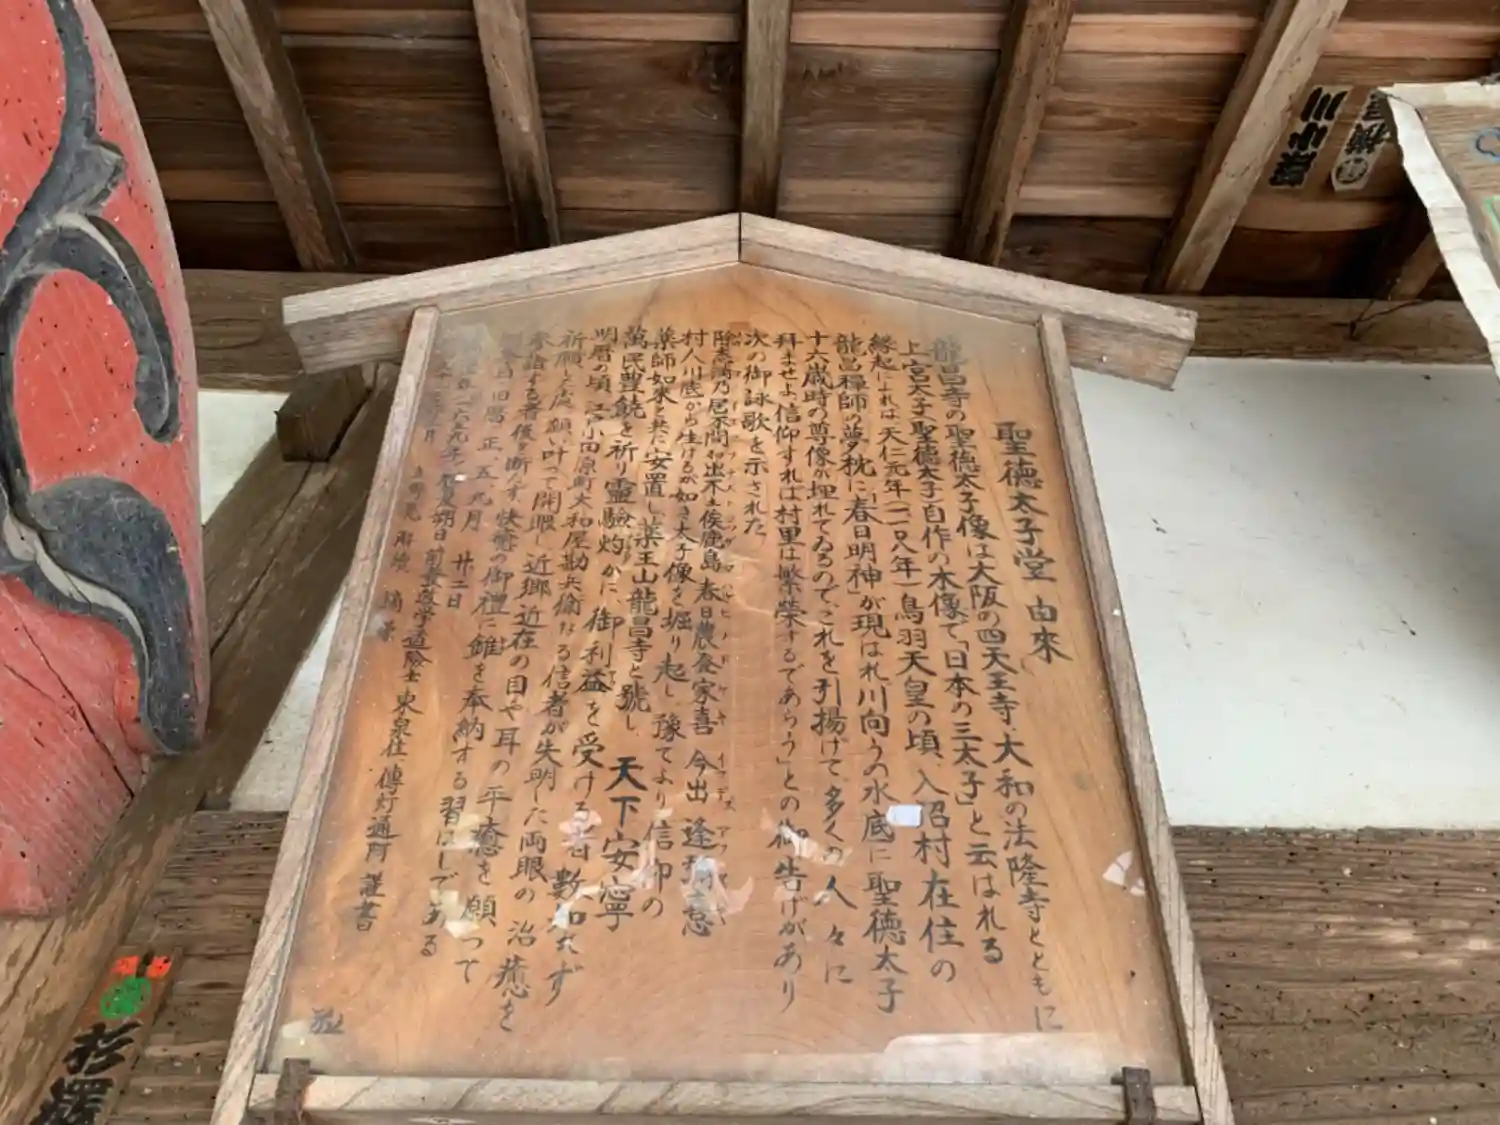 聖徳太子堂 由來
龍昌寺の聖徳太子像は大阪の四天王寺、大和の法隆寺とともに
上宮太子(聖徳太子)自作の木像で「日本の三太子」と云はれる
縁起によれば天仁元年(一一〇八年)鳥羽天皇の頃、入沼村在住の
龍昌禪師の夢枕に「春日明神」が現はれ川向うの水底に聖徳太子
十六歳時の尊像が埋れてゐるので、これを引揚げて、多くの人々に
拜ませよ、信仰すれば村里は繁榮するであらう」との御告げがあり
次の御詠歌を示された
乃 居不聞 出 俟鹿島 春日農 家喜 今出 逢
村人川底から生けるが如き太子像を堀り起し 豫てより信仰の
薬師如來と共に安置し、薬王山龍昌寺と號し、天下安寧
萬民豊饒を祈り靈驗灼かに、御利益を受ける者数知れず
明暦の頃、江戸小田原町大和屋勘兵衛なる信者が失明した両眼の治癒を
祈願した處、願い叶って開眼し、近郷近在の目や耳の平癒を願って
参詣する者後を断たず、快癒の御禮に錐を奉納する習はしである
旧暦 正、五、九月 廿二日
前 遊学道險士 東泉住 傳灯通阿 謹書
杉澤